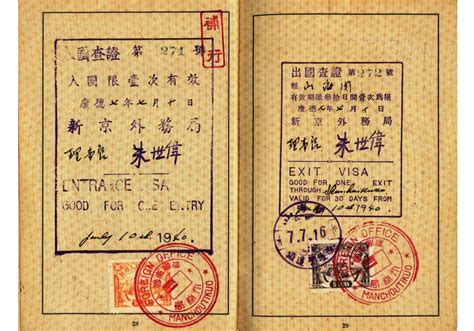 補行
入國査證 第 271 號
入國限壹次有效
康德七年七月十日
新京外務局
理事官
朱世偉
ENTRANCE VISA
GOOD FOR ONE ENTRY
July 10th 1940.
FOREIGN OFFICE
MANCHOUTIKUO
28
出國査證 第272號
經山海關
有效期限叄拾日間壹次爲限
康德七年七月十日
新京外務局
理事官
朱世偉
EXIT VISA
GOOD FOR ONE EXIT
THROUGH Shanhaikwan
VALID FOR 30 DAYS FROM
10th 1940
7.7.16
FOREIGN OFFICE
MANCHOUTIKUO
29